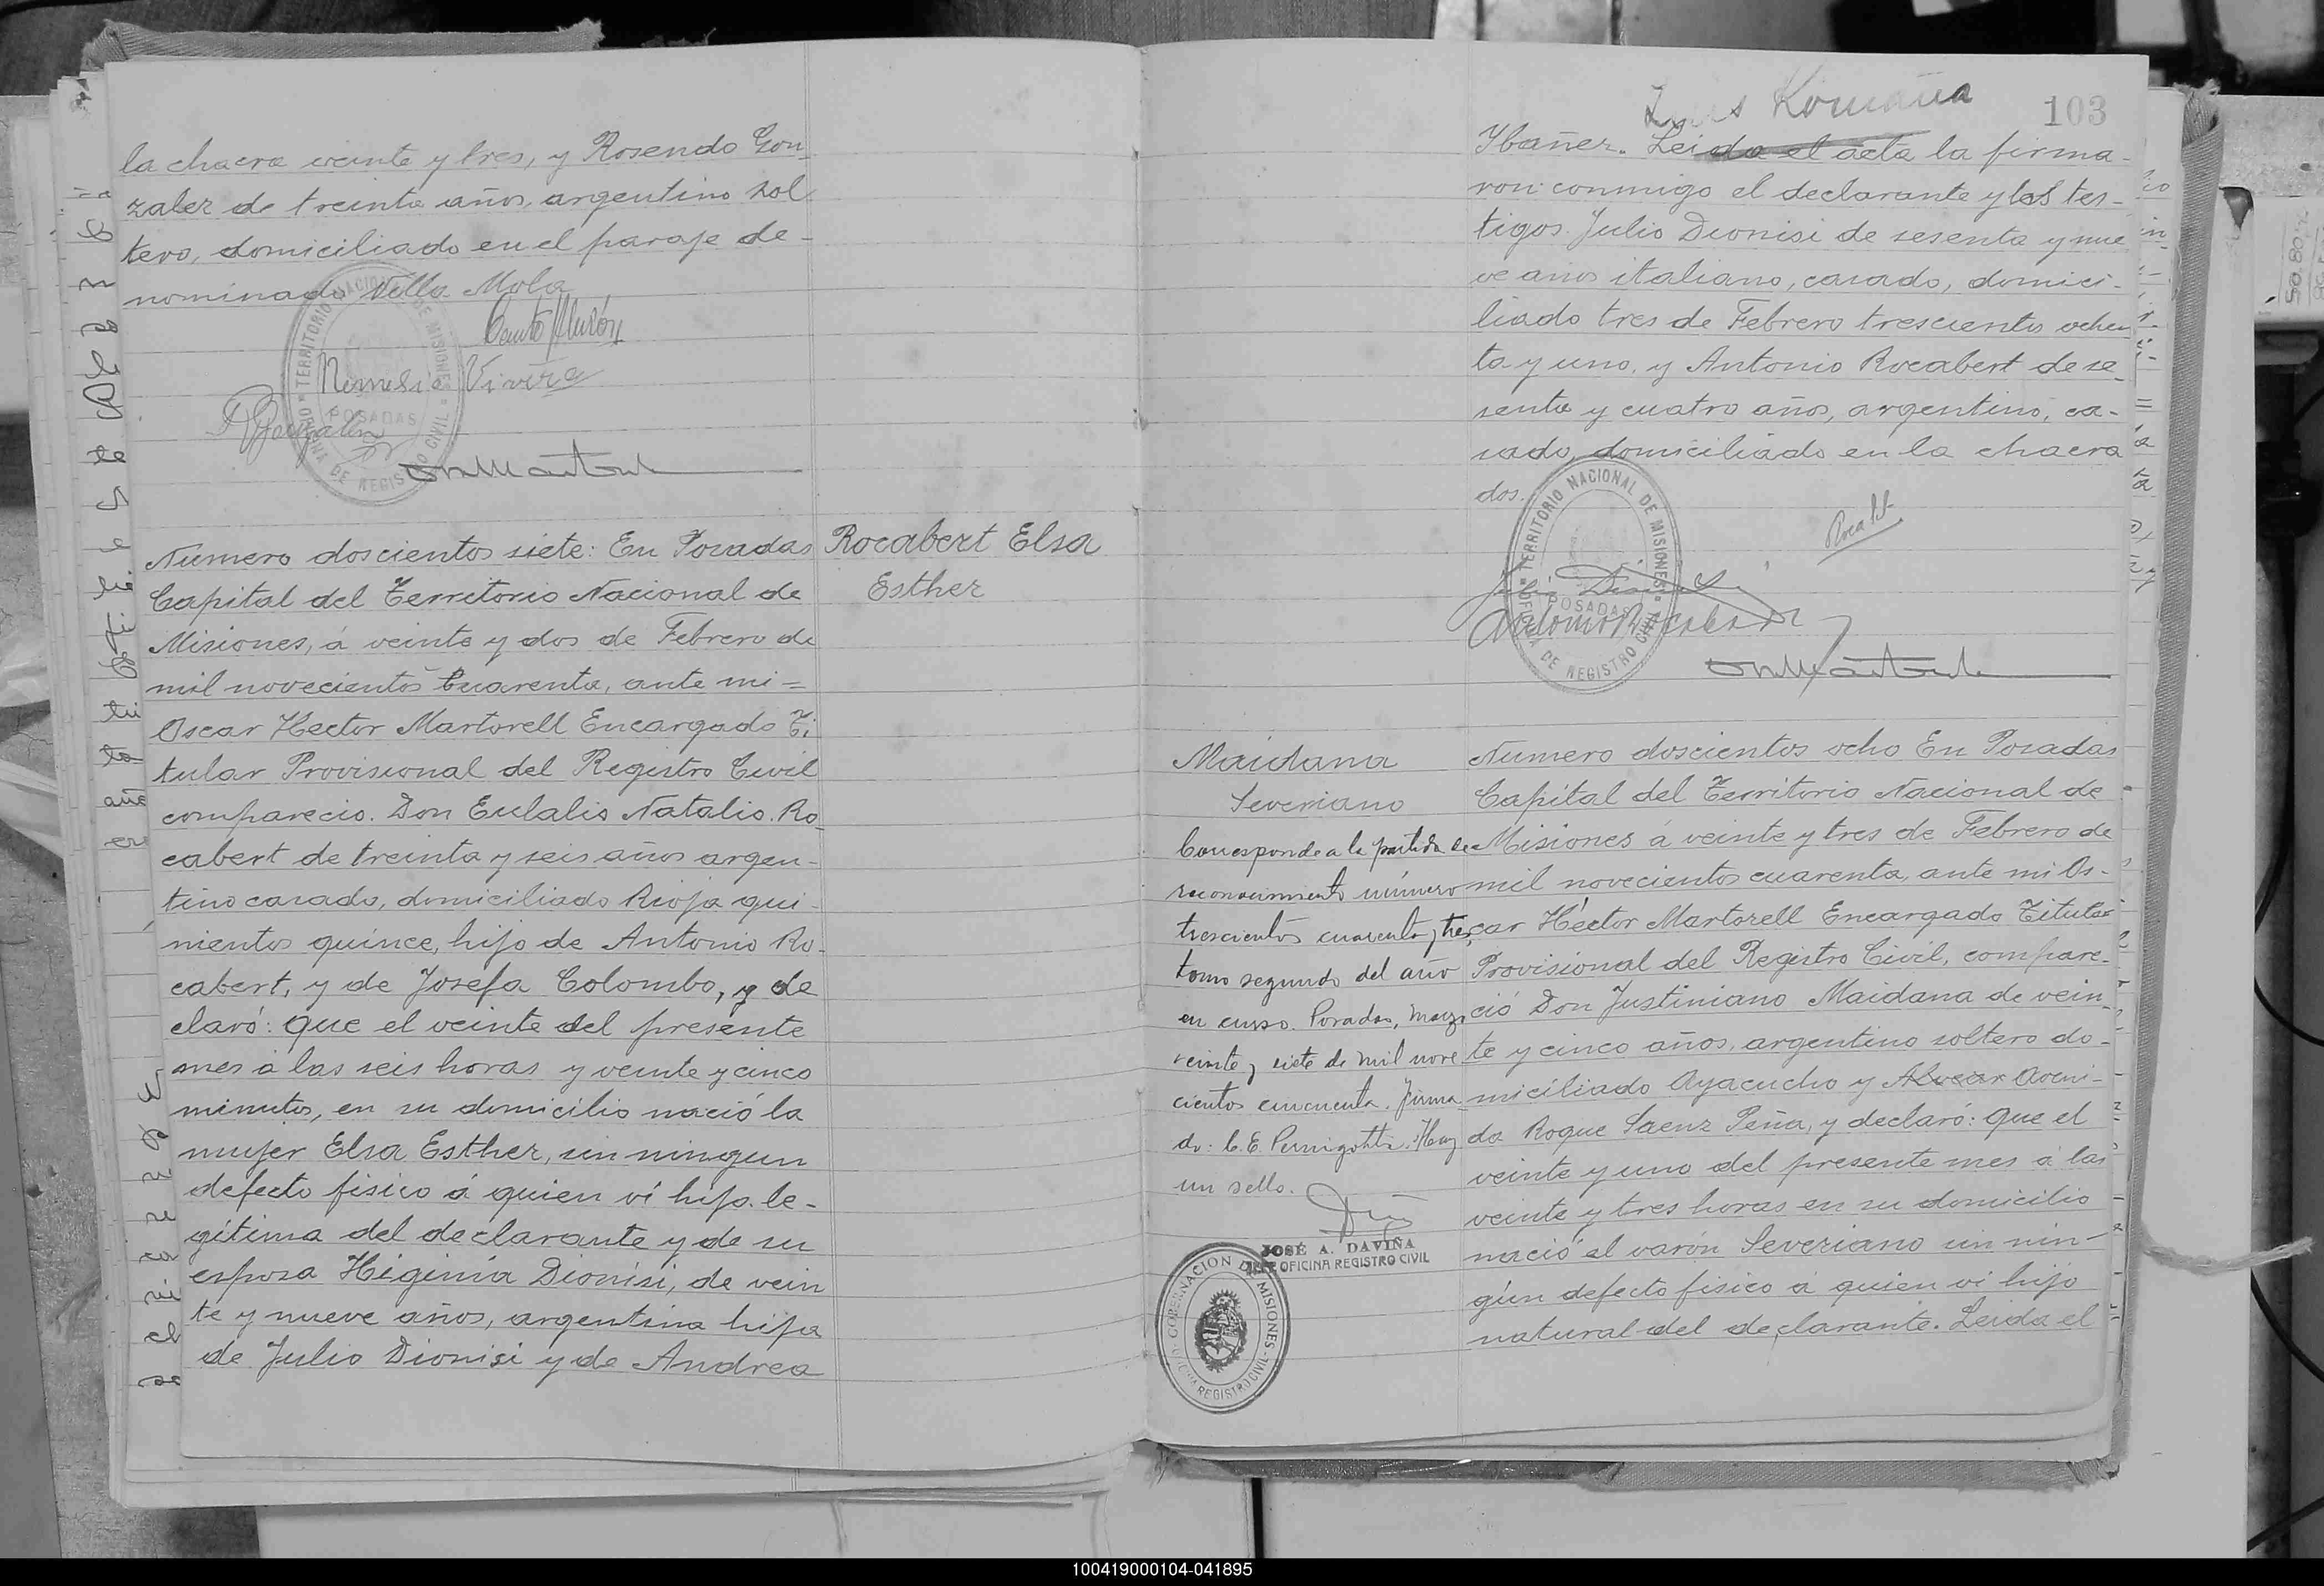 la chacra veinte y tres, y Rosendo Gon-
zalez de treinta años, argentino sol
tero, domiciliado en el paraje de-
nominado Villa Mola
Nemesio Vivero
TERRITORIO NACIONAL DE MISIONES
POSADAS
OFICINA DE REGISTRO CIVIL
Rocabert Elsa
Esther
Numero doscientos siete: En Posadas
Capital del Territorio Nacional de
Misiones, á veinte y dos de Febrero de
mil novecientos cuarenta, ante mi=
Oscar Hector Martorell Encargado Ti
tular Provisional del Registro Civil
comparecio. Don Eulalio Natalio. Ro-
cabert de treinta y seis años argen-
tino casado, domiciliado Rioja qui-
nientos quince, hijo de Antonio Ro-
cabert, y de Josefa Colombo, y de
claró: Que el veinte del presente
mes á las seis horas y veinte y cinco
minutos, en su domicilio nació la
mujer Elsa Esther, sin ningun
defecto fisico á quien ví hija le-
gítima del declarante y de su
esposa Higinia Dionisi, de vein
te y nueve años, argentina hija
de Julio Dionisi y de Andrea
Romaña
103
Ybañez. Leida el acta la firma-
ron conmigo el declarante y los tes-
tigos Julio Dionisi de sesenta y nue
ve años italiano, casado, domici-
liado tres de Febrero trescientos ochen
ta y uno, y Antonio Rocabert de se-
senta y cuatro años, argentino, ca-
sado, domiciliado en la chacra
dos.
TERRITORIO NACIONAL DE MISIONES
POSADAS
OFICINA DE REGISTRO CIVIL
Julio Dionisi
Antonio Rocabert
Maidana
Severiano
Corresponde a la partida de
reconocimiento número
trescientos cuarenta y tres,
tomo segundo del año
en curso. Posadas, marzo
veinte y siete de mil nove
cientos cincuenta. Firma
do: C. E. Pernigotti. Hay
un sello.
JOSÉ A. DAVIÑA
JEFE OFICINA REGISTRO CIVIL
GOBERNACION DE MISIONES
REGISTRO CIVIL
Numero doscientos ocho En Posadas
Capital del Territorio Nacional de
Misiones á veinte y tres de Febrero de
mil novecientos cuarenta, ante mi Os-
car Héctor Martorell Encargado Titular
Provisional del Registro Civil, compare-
ció Don Justiniano Maidana de vein-
te y cinco años, argentino soltero do-
miciliado Ayacucho y Alvear Aveni-
da Roque Saenz Peña, y declaró: Que el
veinte y uno del presente mes á las
veinte y tres horas en su domicilio
nació el varón Severiano sin nin-
gún defecto fisico á quien vi hijo
natural del declarante. Leida el
100419000104-041895